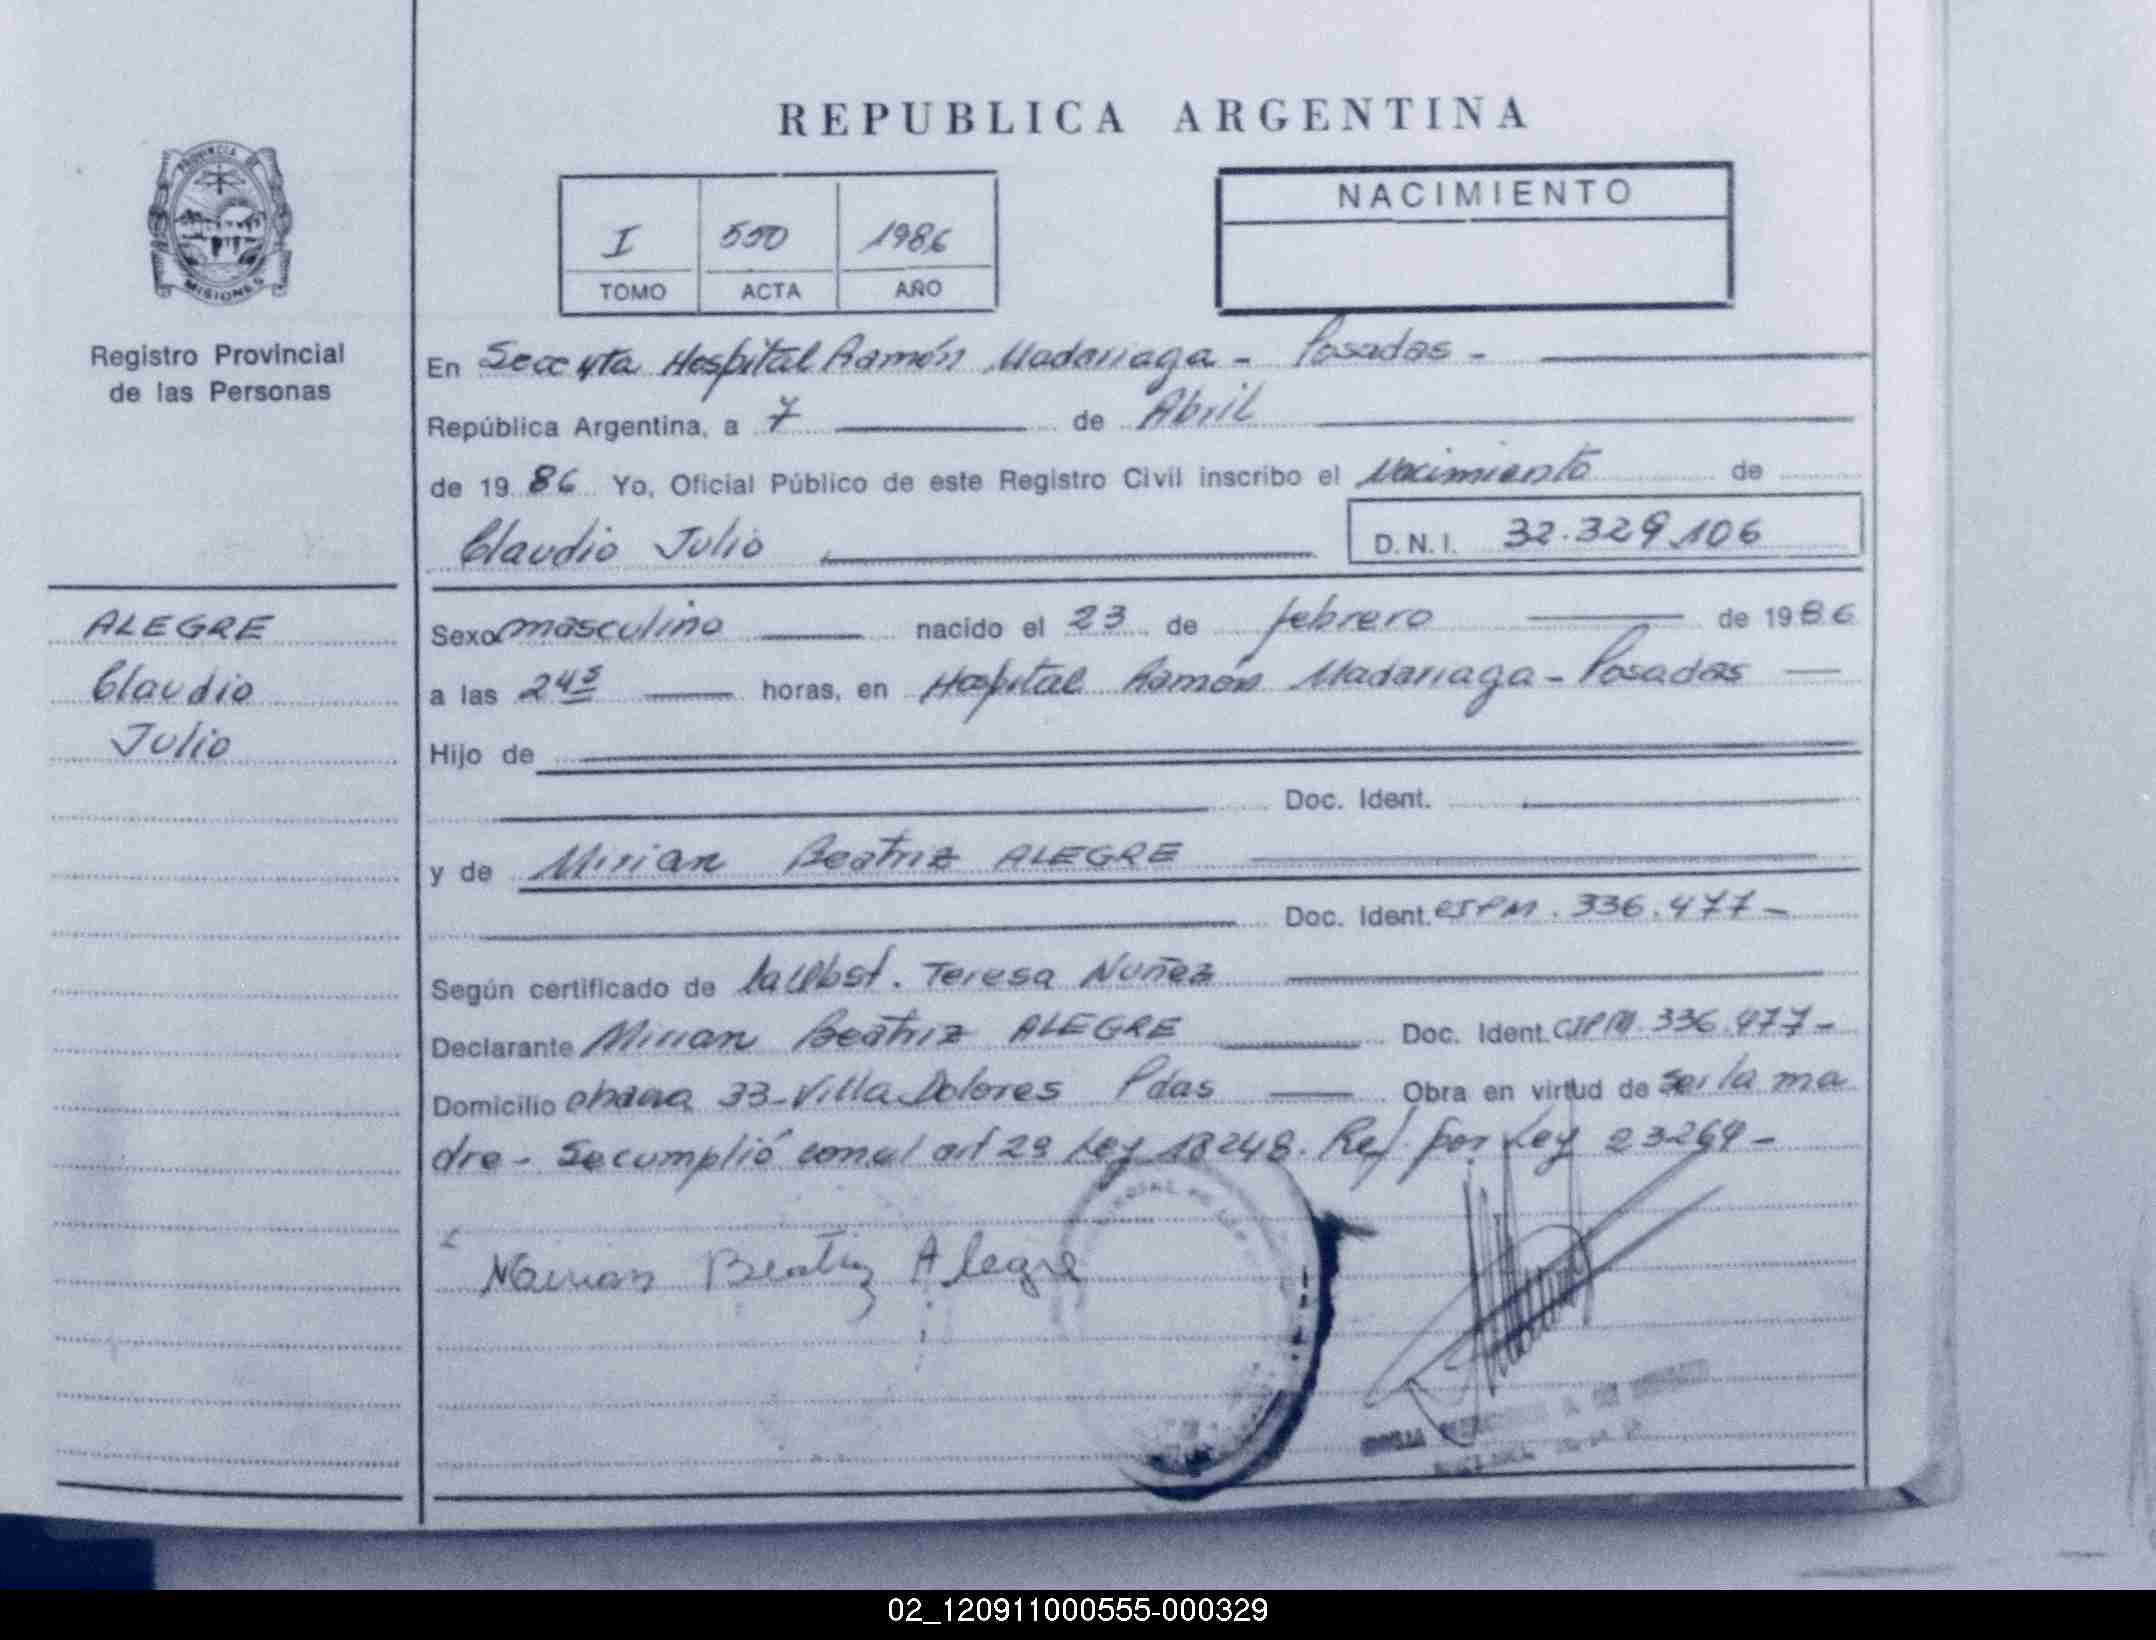 REPUBLICA ARGENTINA
PROVINCIA DE
MISIONES
Registro Provincial
de las Personas
I 550 1986
TOMO ACTA AÑO
NACIMIENTO
En Hospital Ramón Madariaga - Posadas -
República Argentina, a 7 de Abril
de 1986 Yo, Oficial Público de este Registro Civil inscribo el Nacimiento de
Claudio Julio D.N.I. 32.329.106
ALEGRE
Claudio
Julio
Sexo masculino nacido el 23 de febrero de 1986
a las 24 5 horas, en Hospital Ramón Madariaga - Posadas
Hijo de
Doc. Ident.
y de Mirian Beatriz ALEGRE
Doc. Ident. CIPM. 336.477-
Según certificado de la Obst. Teresa Nuñez
Declarante Mirian Beatriz ALEGRE Doc. Ident. CIPM. 336.477-
Domicilio 33-Villa Dolores Pdas Obra en virtud de ser la ma
dre - Se cumplió con el art 29 Ley 18248. Ref. por Ley 23264-
Mirian Beatriz Alegre
02_120911000555-000329